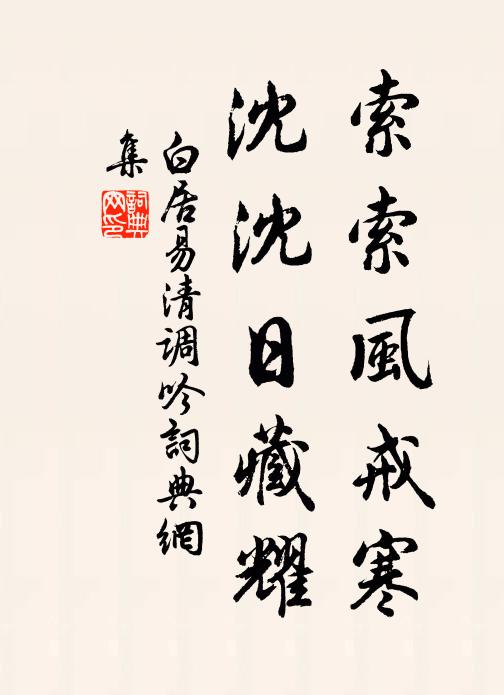 索索風戒寒
沈沈日藏耀
白居易清調吟詞典網
集
詞典網印